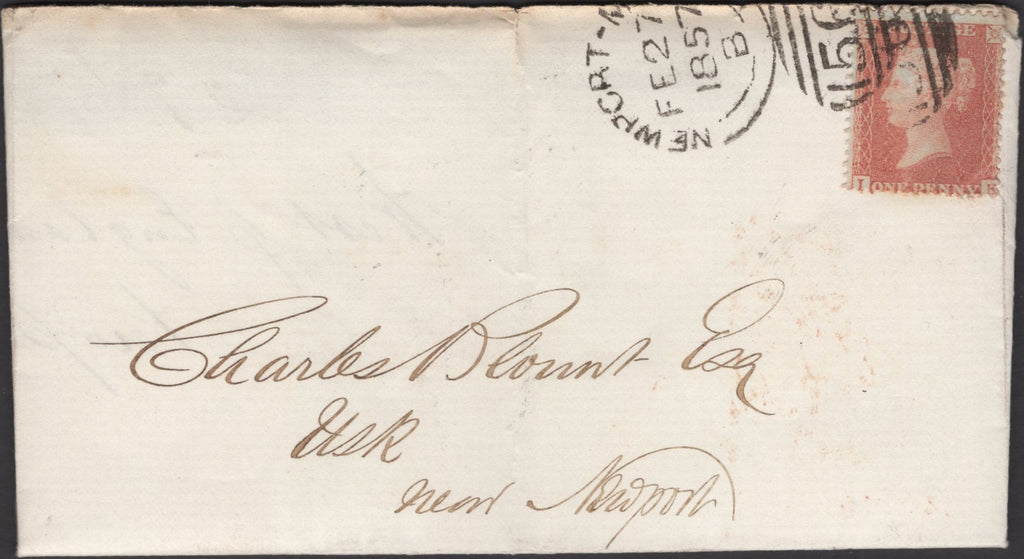 NEWPORT-M
FE 27
1857
B
POSTAGE
I ONE PENNY K
Charles Blount Esq
Usk
near Newport